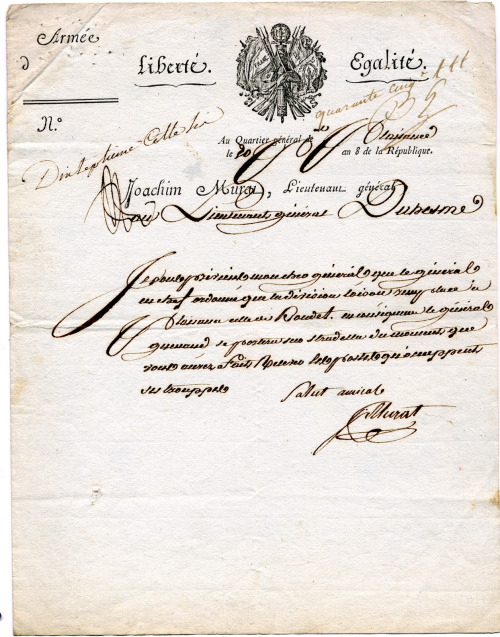 Armée
Liberté. Egalité.
quarante cinq
N.º
Au Quartier-général de Plaisance
le 20 an 8 de la République.
Joachim Murat, Lieutenant général
au Lieutenant général Duhesme
Je vous préviens mon cher général que le général
en chef ordonne que la division Loison remplace à
Plaisance celle de Boudet, en conséquence le général
se portera sur Stradella du moment que
vous aurez fait relever les postes qu'occupent
ses troupes
Salut amical
J Murat